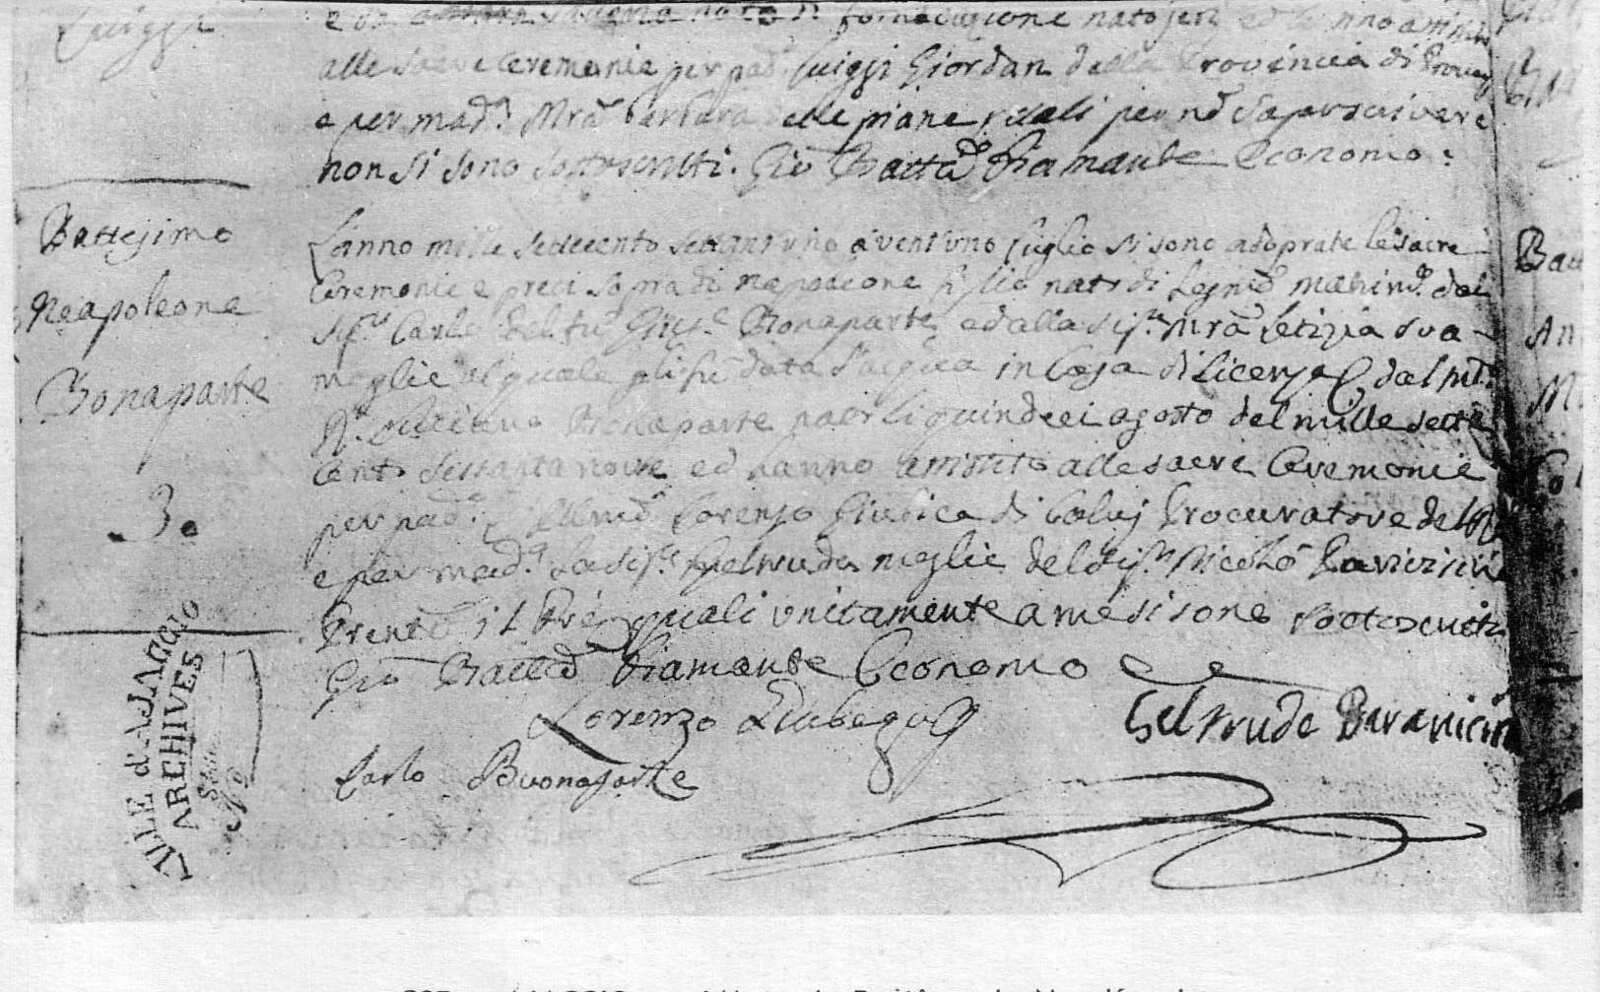 Luiggi
fornicazione nato jeri ed hanno assistito
alle sacre Ceremonie per pad. Luiggi Giordan della Provincia di
e per mad. Mra Barbara delle piane, i quali per nō saper scrivere
non si sono sottoscritti. Gio Batta Diamante Economo.
Battesimo
Neapoleone
Bonaparte
3.
L'anno mille settecento settant'uno a vent'uno luglio si sono adoprate le sacre
Ceremonie e preci sopra di Napoleone figlio nato di Legmo matrimo. dal
Sig.r Carlo del fu Gius.e Bonaparte, ed alla Sig.ra Mra Letizia sua
moglie al quale gli fu data l'acqua in Casa di Licenza dal M.
R. Luciano Bonaparte nato li quindeci agosto del mille sette
cento sessanta nove ed hanno assistito alle sacre Ceremonie
per pad. l'Illmo Lorenzo Giubica di Calvj Procuratore del Rè
e per mad. la Sig.ra Geltruda moglie del Sig.r Nicolò Paravicini
Presente il Pre, quali unitamente a me si sono sottoscritti
Gio Batta Diamante Economo
Lorenzo Giubega
Geltrude Paravicini
Carlo Buonaparte
VILLE d'AJACCIO
ARCHIVES
Série
N°
Batt
An
M